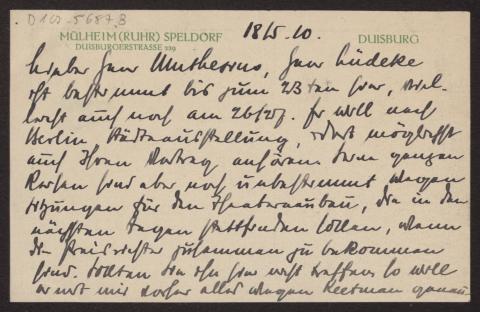 D 102-5687,B
MÜLHEIM (RUHR) SPELDORF
DUISBURGERSTRASSE 229
18/5.10.
DUISBURG
Lieber Herr Muthesius, Herr Lüdeke
ist bestimmt bis zum 23ten hier, viel-
leicht auch noch am 26/27. Er will nach
Berlin, Städteausstellung, und möglichst
auch Ihren Vortrag anhören. Seine ganzen
Reisen sind aber noch unbestimmt wegen
Sitzungen für den Theaterausbau, die in den
nächsten Tagen stattfinden sollen, wenn
die Preisrichter zusammen zu bekommen
sind. Sollten Sie ihn hier nicht treffen so will
er mit mir vorher alles wegen Reetman genau